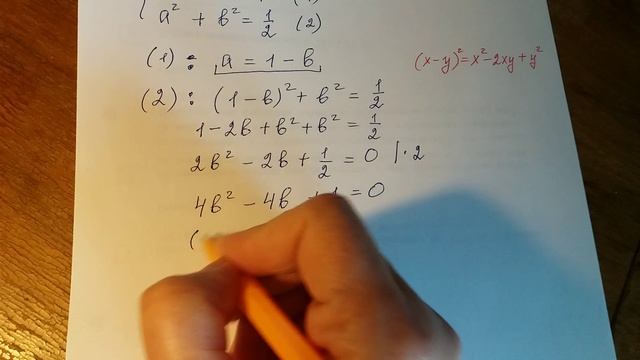 a² + b² = 1/2 (2)
(1) : a = 1 - b
(x-y)² = x² - 2xy + y²
(2) : (1-b)² + b² = 1/2
1 - 2b + b² + b² = 1/2
2b² - 2b + 1/2 = 0 |·2
4b² - 4b + 1 = 0
(